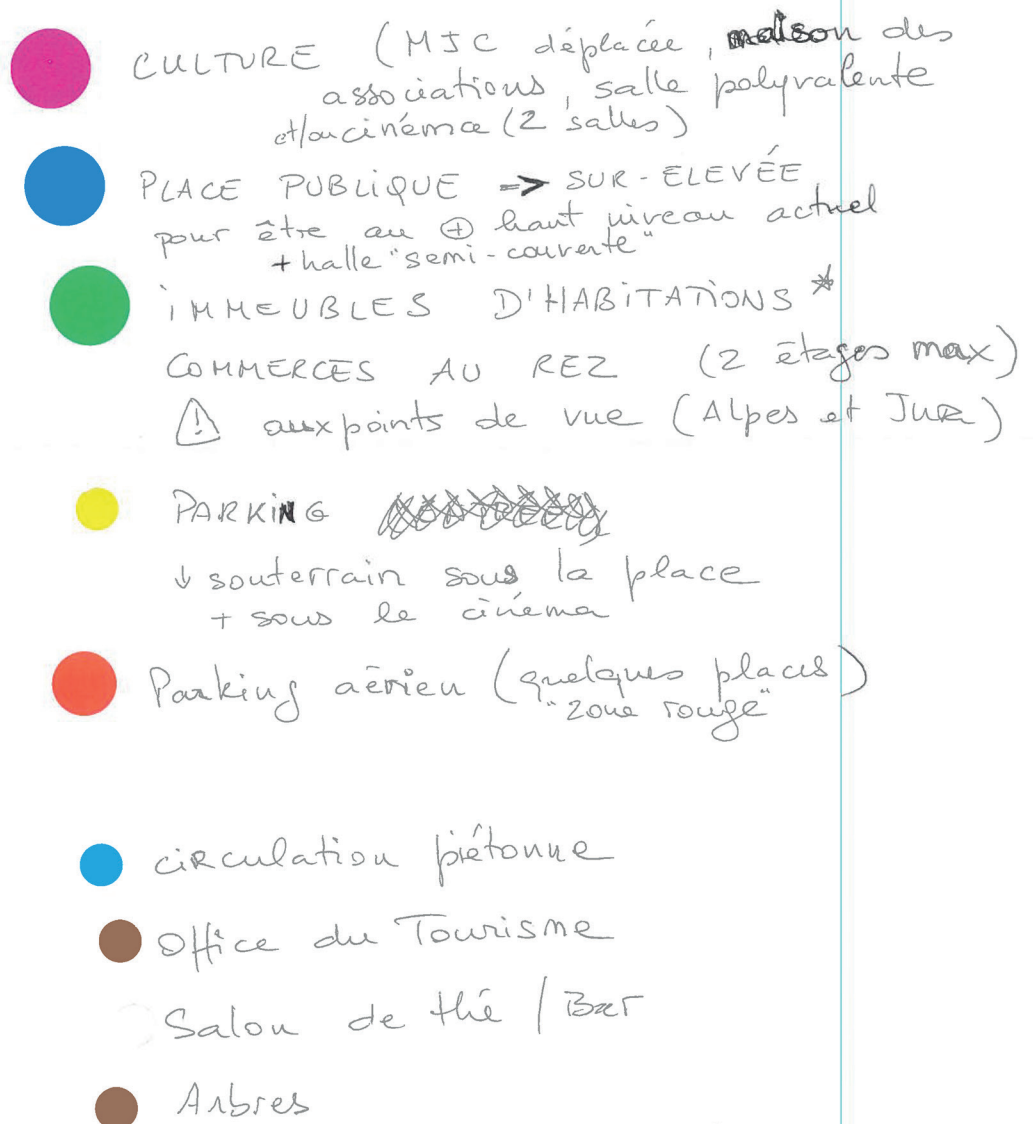 CULTURE (MJC déplacée, maison des
associations, salle polyvalente
et/ou cinéma (2 salles)
PLACE PUBLIQUE => SUR-ELEVÉE
pour être au ⊕ haut niveau actuel
+ halle "semi-couverte"
IMMEUBLES D'HABITATIONS *
COMMERCES AU REZ (2 étages max)
⚠ aux points de vue (Alpes et Jura)
PARKING
↓ souterrain sous la place
+ sous le cinéma
Parking aérien (quelques places)
"zone rouge"
circulation piétonne
Office du Tourisme
Salon de thé / Bar
Arbres